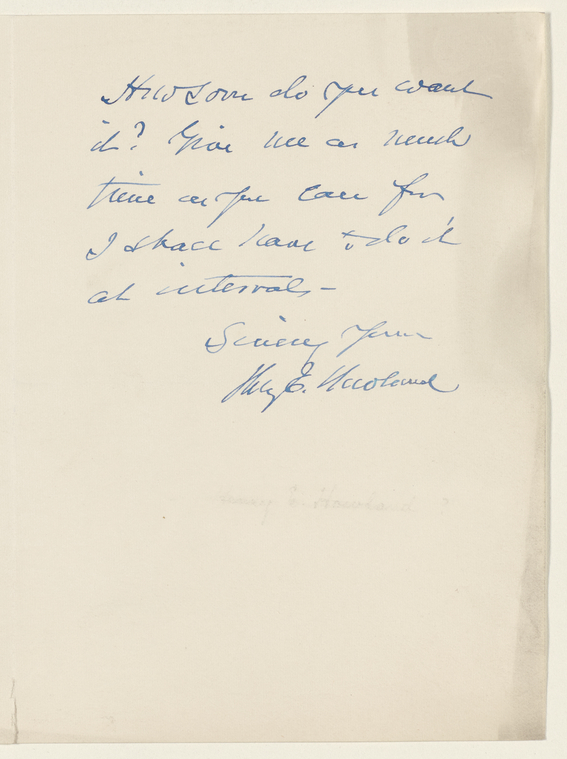 How soon do you want
it? Give me as much
time as you can for
I shall have to do it
at intervals –
Sincerely Yours
Henry E. Howland
Henry E. Howland ?